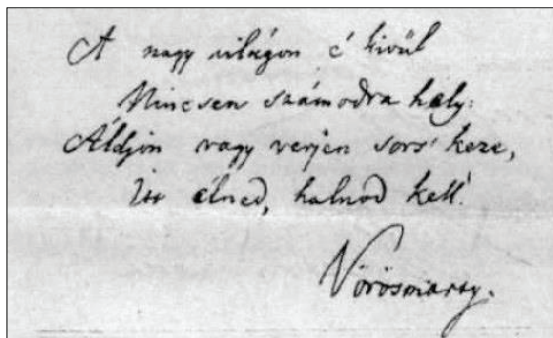 A nagy világon é kivűl
Nincsen számodra hely:
Áldjon vagy verjen sors' keze,
Itt élned, halnod kell.
Vörösmarty.